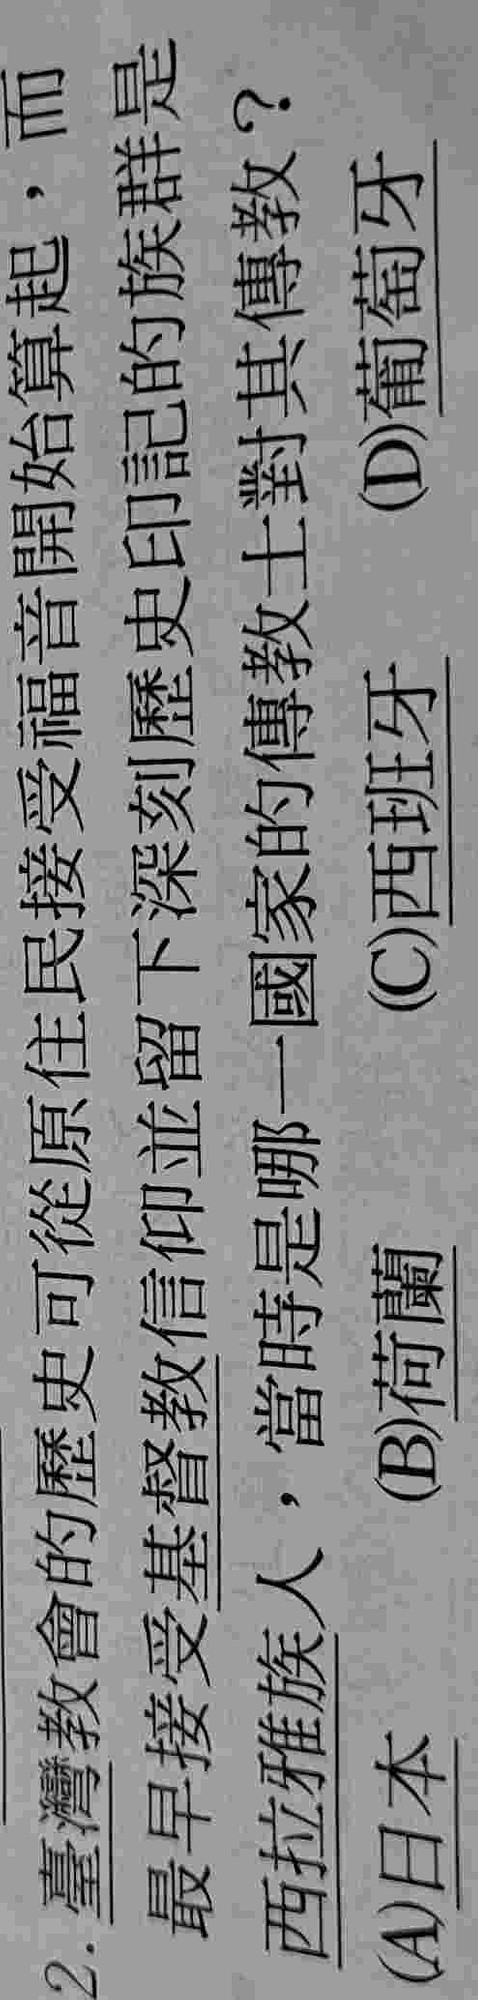 2. 臺灣教會的歷史可從原住民接受福音開始算起，而
最早接受基督教信仰並留下深刻歷史印記的族群是
西拉雅族人，當時是哪一國家的傳教士對其傳教？
(A)日本 (B)荷蘭 (C)西班牙 (D)葡萄牙